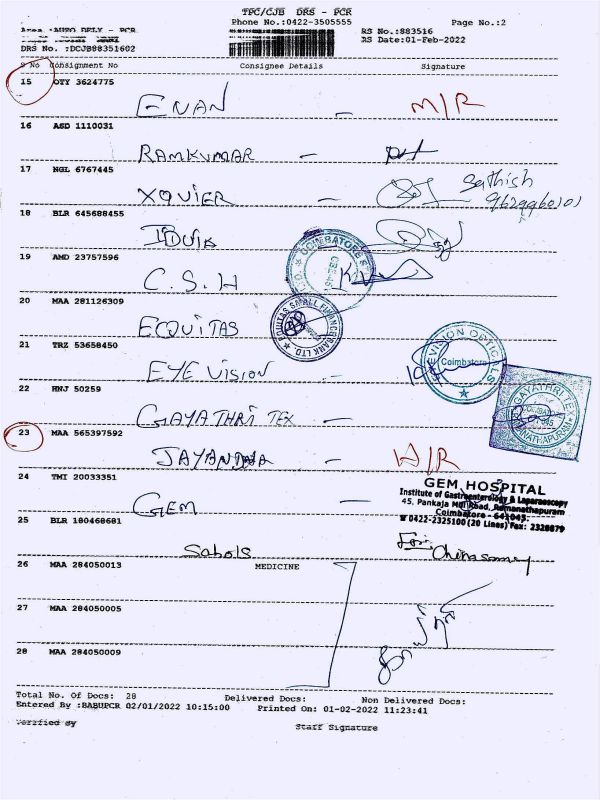 TPC/CJB DRS - PCR
Phone No.:0422-3505555 Page No.:2
Area :AUTO DELY - PCR RS No.:883516
RS Date:01-Feb-2022
DRS No. :DCJB88351602
S No Consignment No Consignee Details Signature
15 OTY 3624775
ENAN -
16 ASD 1110031
RAMKUMAR -
17 NGL 6767445
XAVIER - Sathish
18 BLR 645688455
19 AMD 23757596
C.S.H
20 MAA 281126309
ECQUITAS
EQUITAS SMALL FINANCE BANK LTD
21 TRZ 53658450
EYE VISION -
EYE VISION OPTICALS
Coimbatore
22 HNJ 50259
GAYATHRI TEX -
GAYATHRI TEX
23 MAA 565397592
24 TMI 20033351
GEM -
GEM HOSPITAL
Institute of Gastroenterology & Laparoscopy
45, Pankaja Mill Road, Ramanathapuram
Coimbatore - 641045.
0422-2325100 (20 Lines) Fax: 2328879
25 BLR 180468681
Sabols
For Chinasamy
26 MAA 284050013 MEDICINE
27 MAA 284050005
28 MAA 284050009
Total No. Of Docs: 28 Delivered Docs: Non Delivered Docs:
Entered By :BABUPCR 02/01/2022 10:15:00 Printed On: 01-02-2022 11:23:41
Verified By Staff Signature